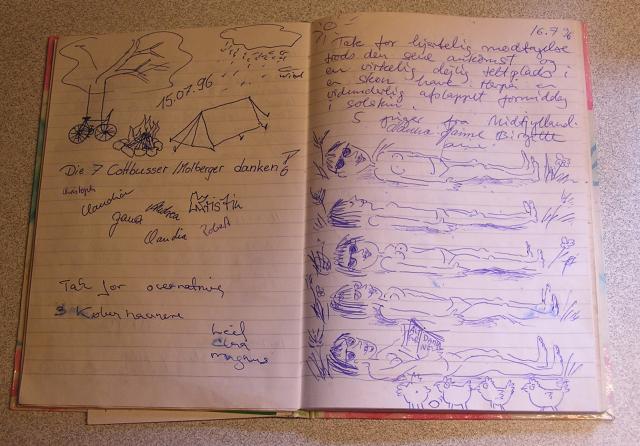 15.07.96
Wind
Die 7 Cottbusser /Molberger danken
Christoph
Claudia
Jana
Andrea
Kristin
Claudia
Robert
Tak for overnatning
3 Københavnere
Leif
Clara
Magnus
16.7.96
Tak for hjertelig modtagelse
trods den sene ankomst og
en virkelig dejlig teltplads i
en skøn have. Herper en
vidunderlig afslappet formiddag
i solskin.
5 piger fra Midtjylland:
Janne Birgitte